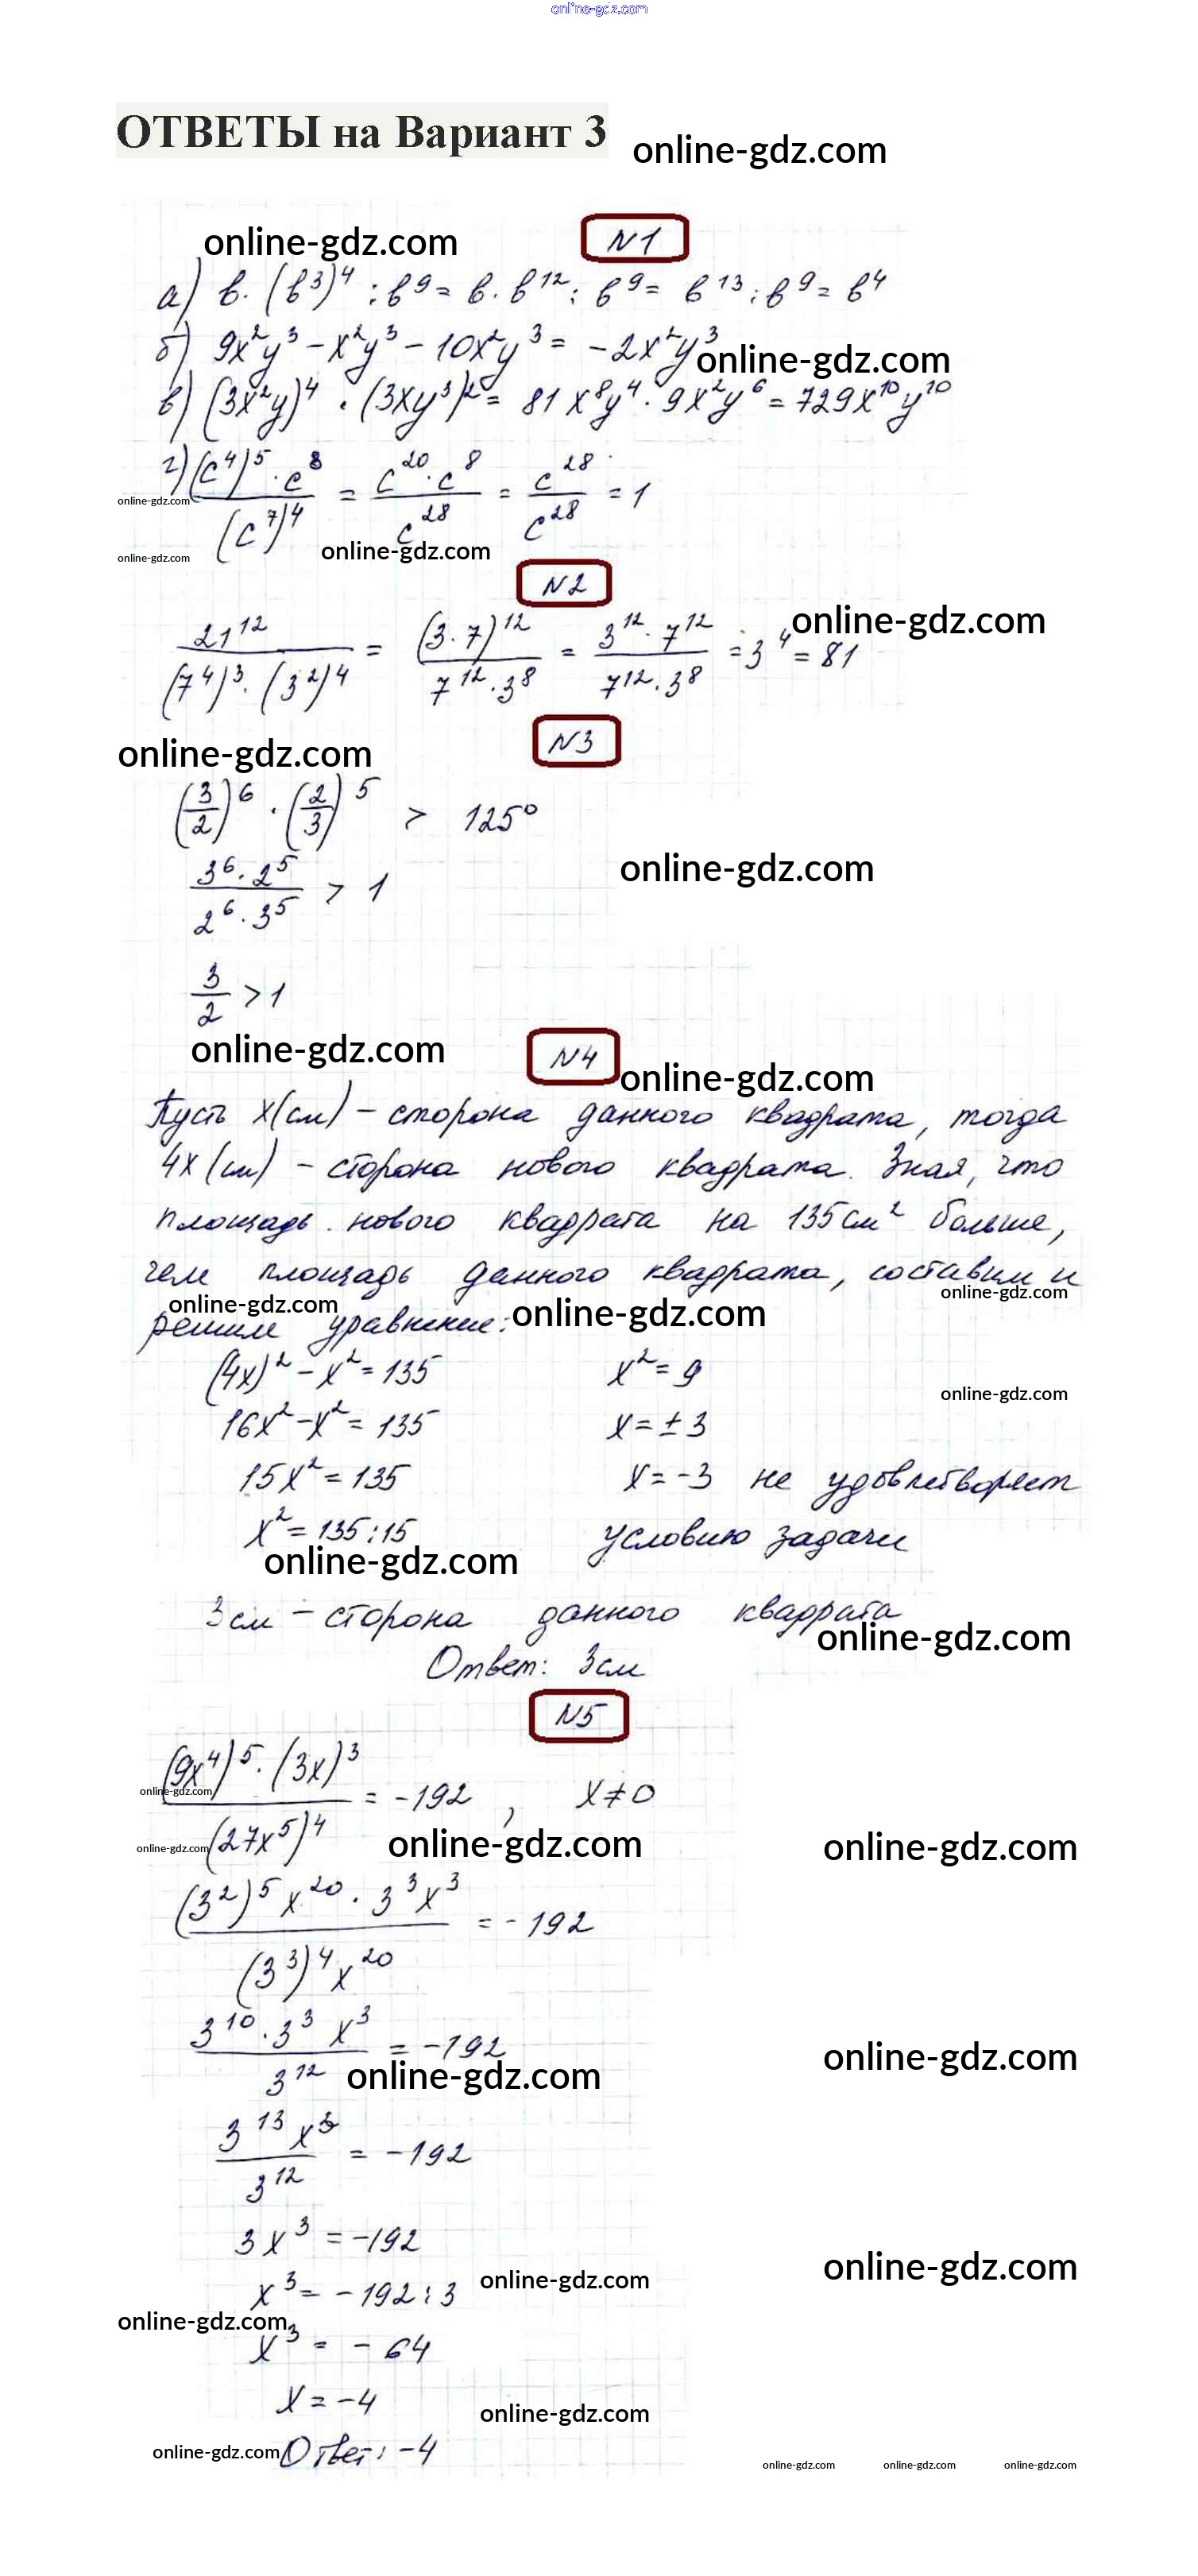 online-gdz.com
ОТВЕТЫ на Вариант 3
online-gdz.com
online-gdz.com
N1
а) b·(b³)⁴ : b⁹ = b·b¹² : b⁹ = b¹³ : b⁹ = b⁴
б) 9x²y³ – x²y³ – 10x²y³ = –2x²y³
online-gdz.com
в) (3x²y)⁴ · (3xy³)² = 81x⁸y⁴ · 9x²y⁶ = 729x¹⁰y¹⁰
г) (c⁴)⁵·c⁸ / (c⁷)⁴ = c²⁰·c⁸ / c²⁸ = c²⁸ / c²⁸ = 1
online-gdz.com
online-gdz.com
online-gdz.com
N2
21¹² / (7⁴)³·(3²)⁴ = (3·7)¹² / 7¹²·3⁸ = 3¹²·7¹² / 7¹²·3⁸ = 3⁴ = 81
online-gdz.com
N3
online-gdz.com
(3/2)⁶ · (2/3)⁵ > 125⁰
3⁶·2⁵ / 2⁶·3⁵ > 1
online-gdz.com
3/2 > 1
online-gdz.com
N4
online-gdz.com
Пусть x(см) – сторона данного квадрата, тогда
4x (см) – сторона нового квадрата. Зная, что
площадь нового квадрата на 135 см² больше,
чем площадь данного квадрата, составим и
online-gdz.com
online-gdz.com
online-gdz.com
решим уравнение:
(4x)² – x² = 135
x² = 9
online-gdz.com
16x² – x² = 135
x = ± 3
15x² = 135
x = –3 не удовлетворяет
x² = 135 : 15
условию задачи
online-gdz.com
3 см – сторона данного квадрата
online-gdz.com
Ответ: 3 см
N5
(9x⁴)⁵·(3x)³ / (27x⁵)⁴ = –192, x ≠ 0
online-gdz.com
online-gdz.com
online-gdz.com
online-gdz.com
(3²)⁵x²⁰·3³x³ / (3³)⁴x²⁰ = –192
3¹⁰·3³ x³ / 3¹² = –192
online-gdz.com
online-gdz.com
3¹³x³ / 3¹² = –192
3x³ = –192
online-gdz.com
x³ = –192 : 3
online-gdz.com
online-gdz.com
x³ = – 64
x = –4
online-gdz.com
online-gdz.com
Ответ: –4
online-gdz.com online-gdz.com online-gdz.com